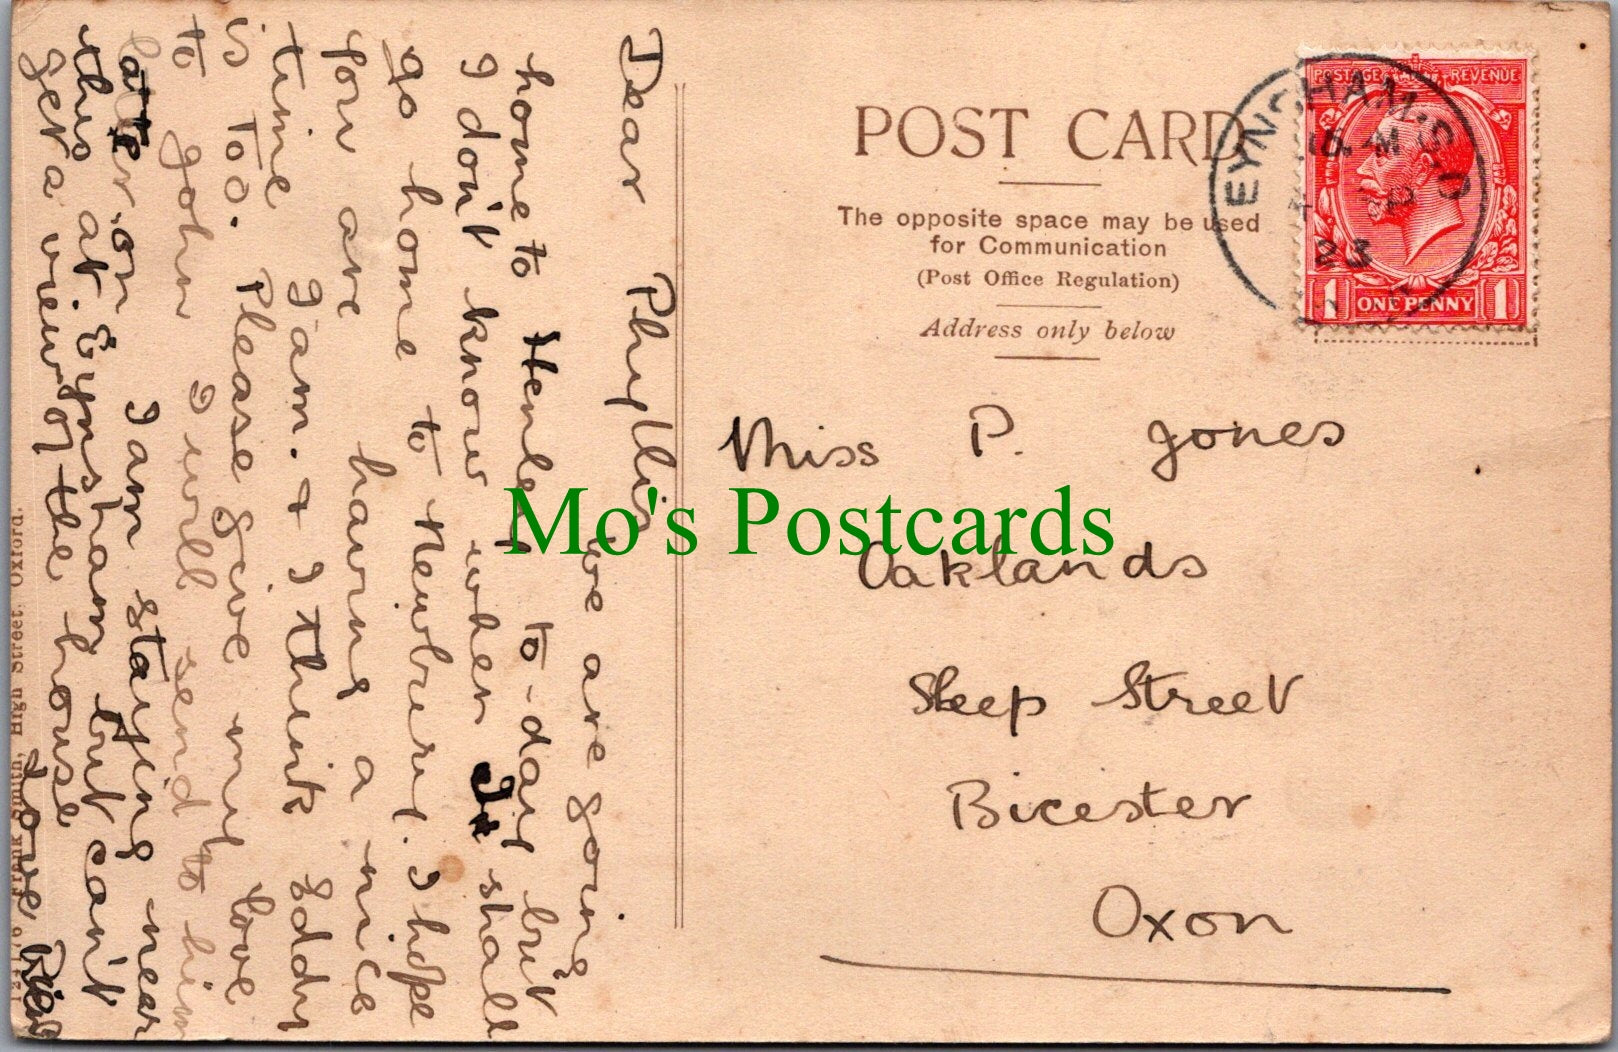 POST CARD
The opposite space may be used
for Communication
(Post Office Regulation)
Address only below
POSTAGE REVENUE
1 ONE PENNY 1
EYNSHAM. S.O
23
Miss P. Jones
Oaklands
Sheep Street
Bicester
Oxon
Dear Phyllis
we are going
home to Henley to-day but
I don't know when I shall
go home to Newbury. I hope
you are having a nice
time I am. & I think Eddy
is too. Please give my love
to John I will send to him
later on I am staying near
this at Eynsham but can't
get a view of the house
Love
Frank Smith, High Street, Oxford.
Mo's Postcards